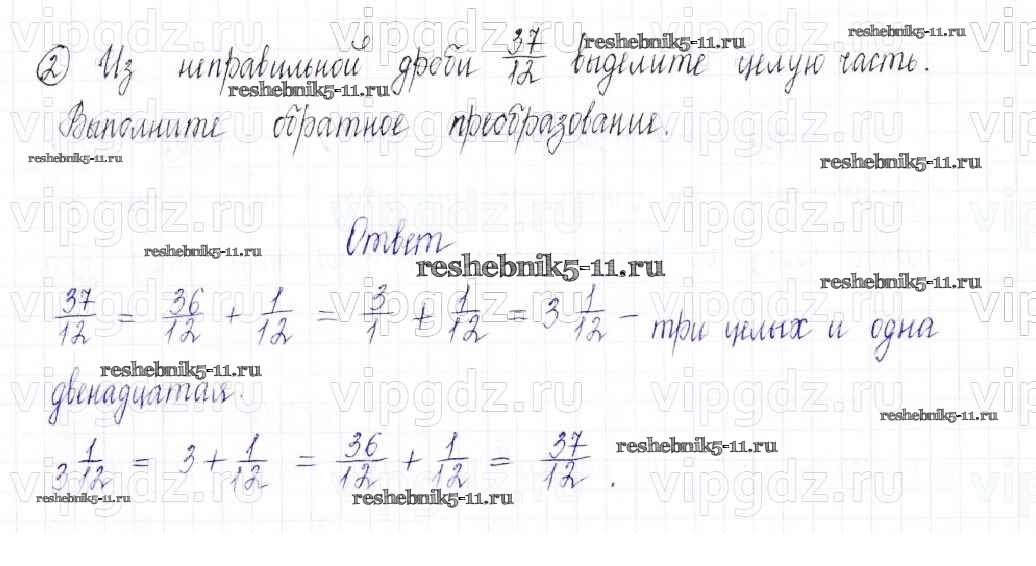 ② Из неправильной дроби 37/12 выделите целую часть.
Выполните обратное преобразование.
Ответ
37/12 = 36/12 + 1/12 = 3/1 + 1/12 = 3 1/12 - три целых и одна
двенадцатая.
3 1/12 = 3 + 1/12 = 36/12 + 1/12 = 37/12 .
reshebnik5-11.ru
vipgdz.ru